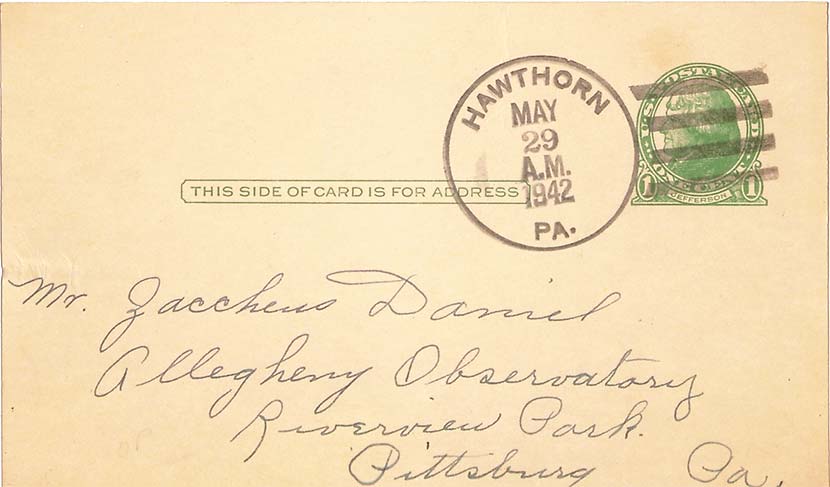 HAWTHORN
MAY
29
A.M.
1942
PA.
U.S. POSTAL CARD
ONE CENT
1 JEFFERSON 1
THIS SIDE OF CARD IS FOR ADDRESS
Mr. Zaccheus Daniel
Allegheny Observatory
Riverview Park.
Pittsburg Pa.